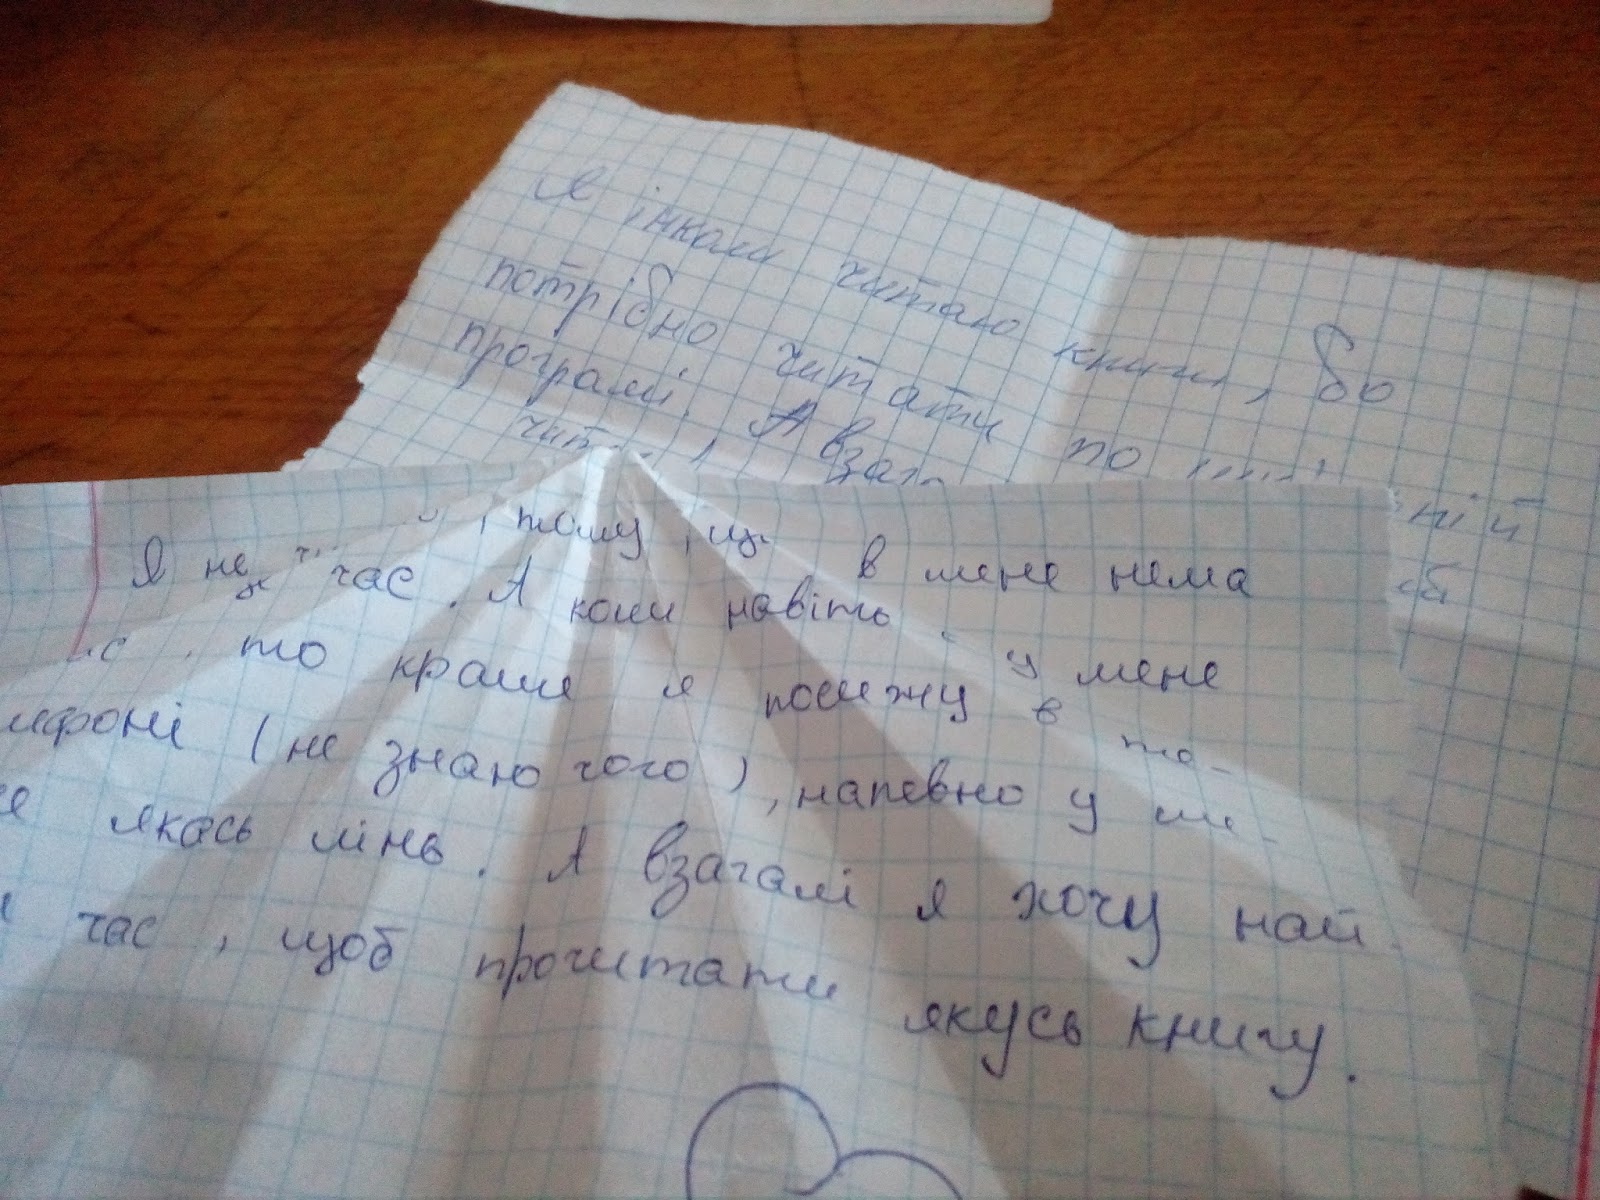 Я інколи читаю книги, бо
потрібно читати по
програмі. А
Я не тому, що в мене нема
час. А коли навіть у мене
то краще я посижу в те-
лефоні (не знаю чого), напевно у ме-
не якась лінь. А взагалі я хочу най-
час, щоб прочитати якусь книгу.